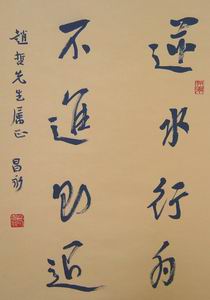 逆水行舟
不進則退
趙哲先生屬正 昌